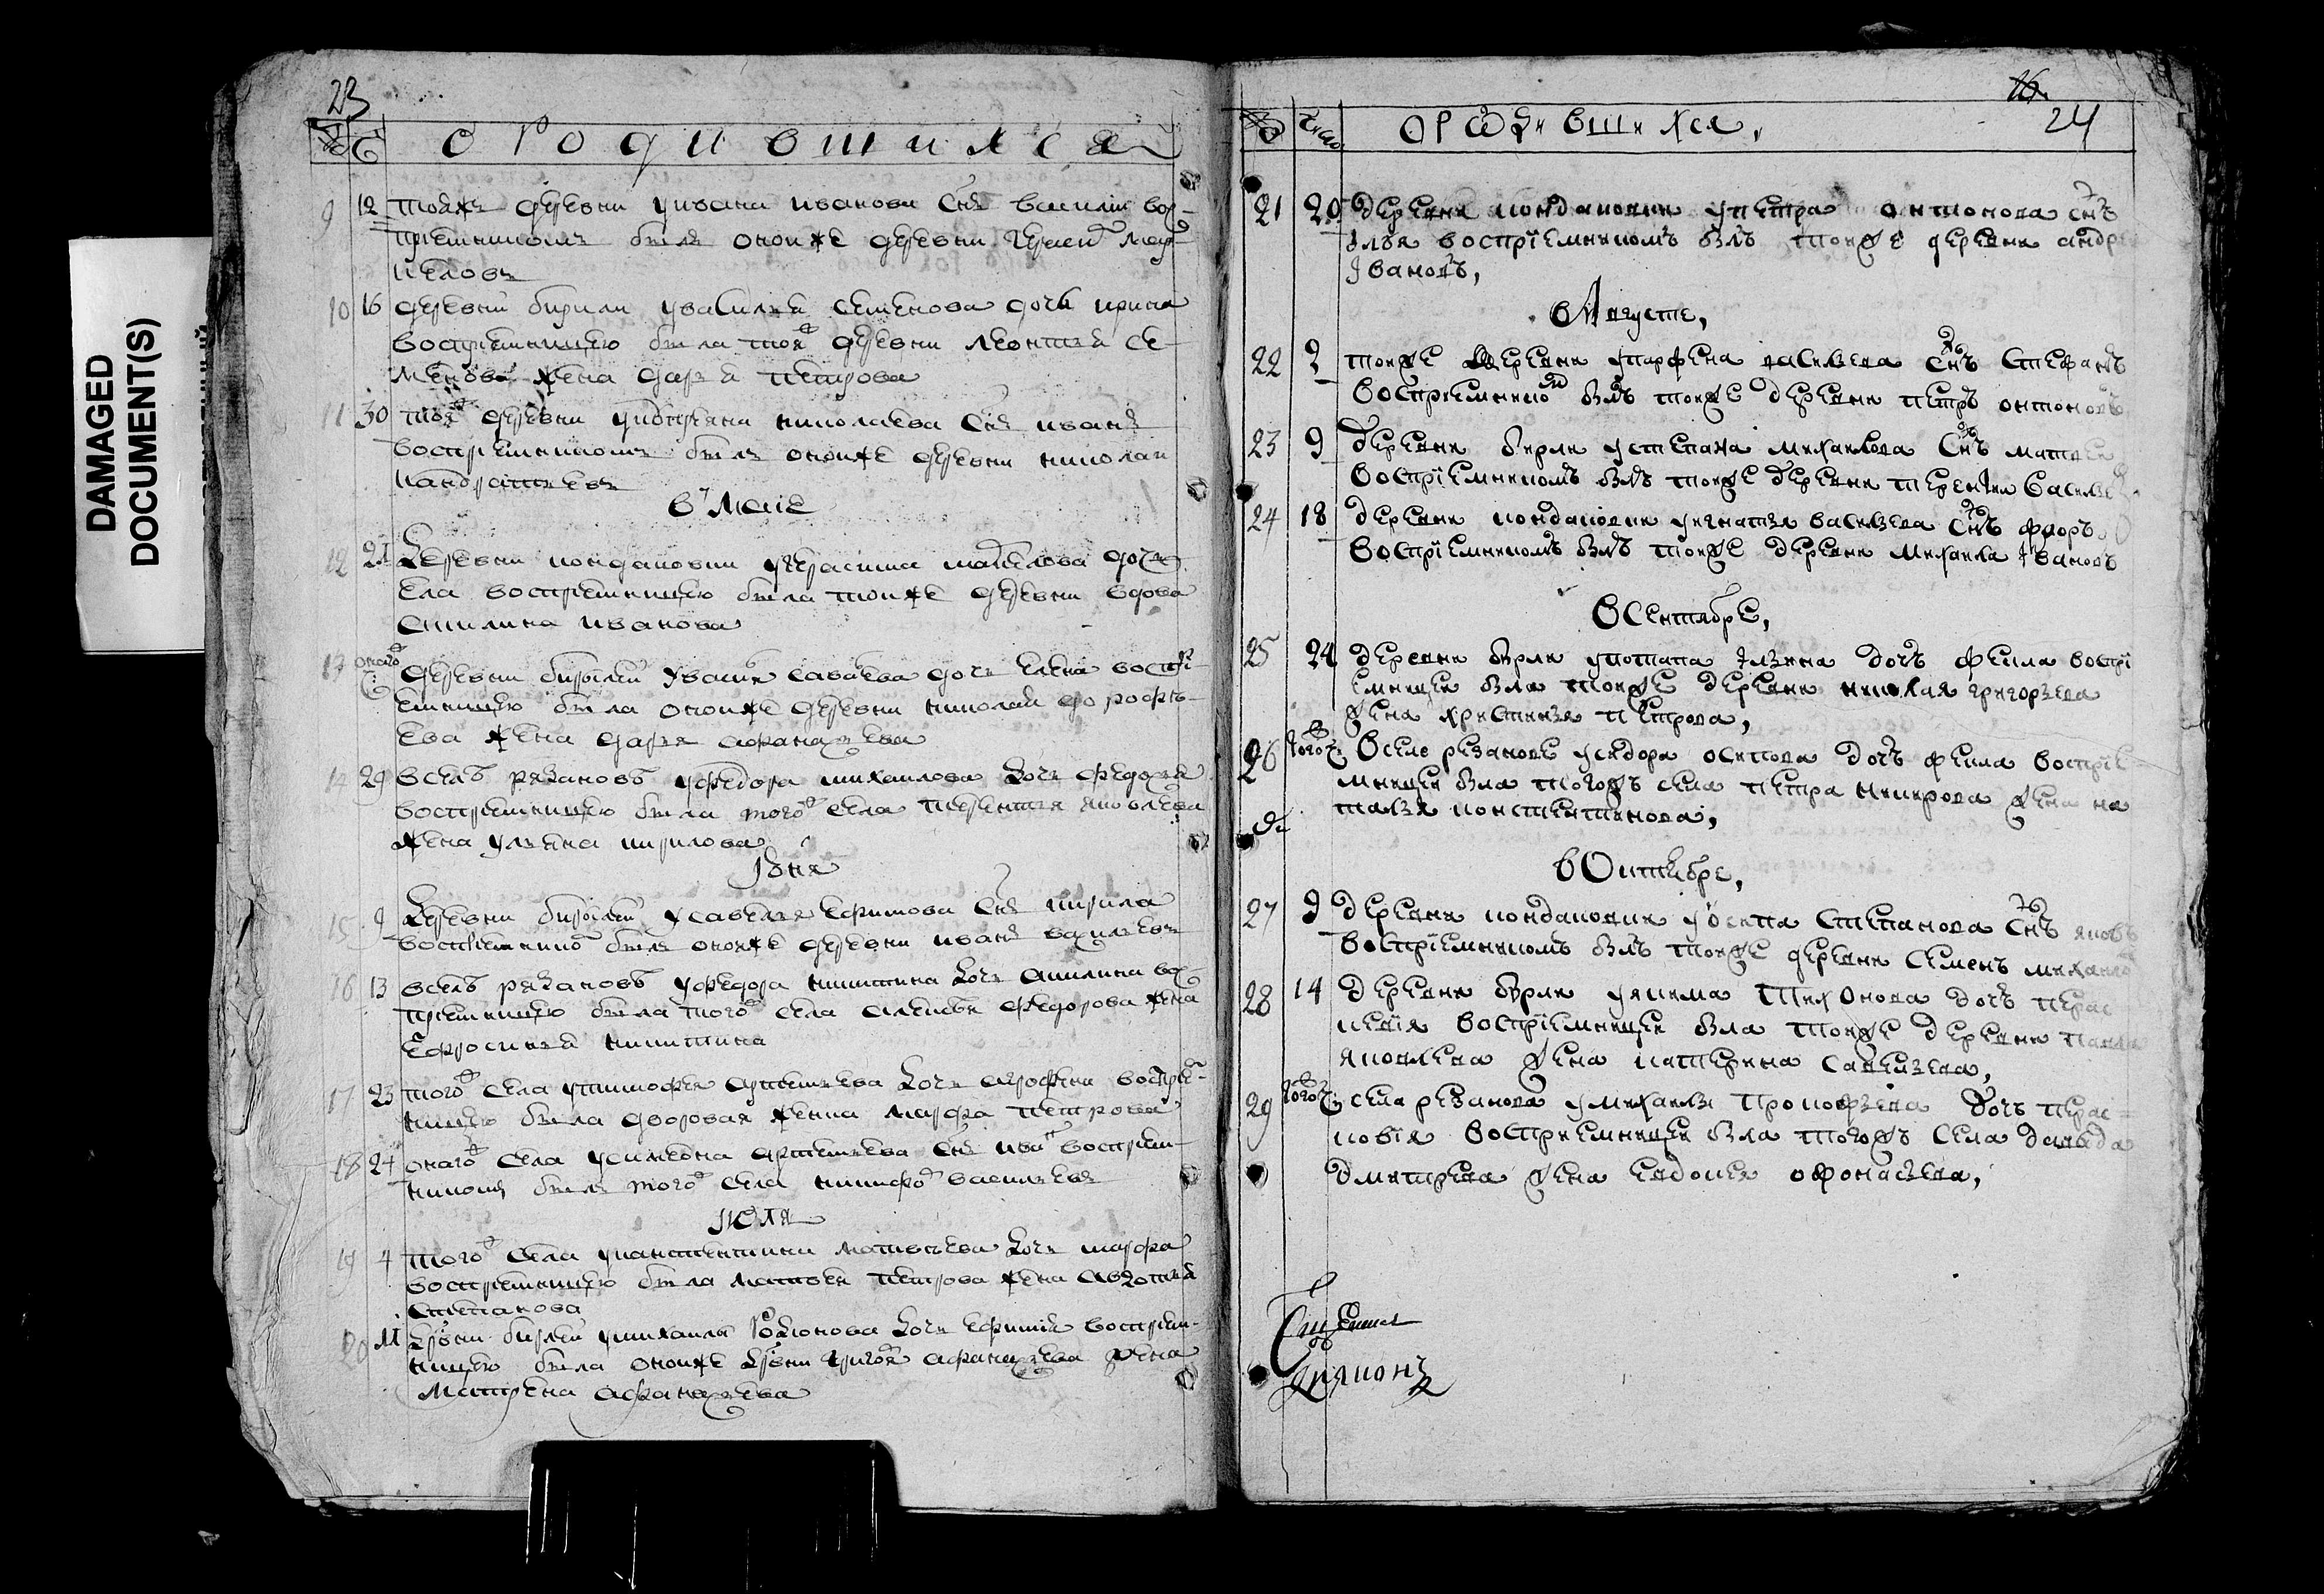 DAMAGED
DOCUMENT(S)
23
№ Ч
о родившихся
9 12 тояже деревни уивана иванова снъ василiи вос-
прiемникомъ былъ оноиже деревни
10 16 деревни бирили увасилья семенова дочь ирина
восприемницею была тояж деревни леонтья се-
менова жена дарья петрова
11 30 тояж деревни николаева снъ иванъ
восприемникомъ былъ оноиже деревни николаи
кандратьевъ
в маiе
12 21 деревни кондаковки угерасима дочь
восприемницею была тоиже деревни вдова
акилина иванова
13 оногож ч деревни савъева дочь елена воспрi-
емницею была оноиже деревни николая дорофѣ-
ева жена дарья афанасьева
14 29 вселѣ рязановѣ уфедора михаилова дочь федосья
восприемницею была тогож села терентья яковлева
жена ульяна кирилова
iюня
15 9 деревни усавелья ефимова снъ кирила
восприемнико былъ оноиже деревни иванъ васильевъ
16 13 вселѣ рязановѣ уфедора никитина дочь акилина вос-
приемницею была тогож села алексѣя федорова жена
ефросинья никитина
17 23 тогож села утимофея артемьева дочь агрофена воспрiе-
ницею была дворовая женка марфа петрова
18 24 оногож села усимеона артемьева снъ ива восприем-
никомъ былъ тогож села никифо васильевъ
июля
19 4 тогож села уканстентина матвѣева дочь марфа
восприемницею была матвея петрова жена авдотья
степанова
20 11 дрвни умихаила родионова дочь ефимiя восприем-
ницею была оноиже дрвни григоя афанасьева жена
матрена афанасьева
24
№ Число
о родившихся,
21 20 деревни кондаковки упетра онтонова снъ
илья воспрiемникомъ былъ тоиже деревни андре
iвановъ,
вАвгусте,
22 2 тоиже деревни упарфена васильева снъ стефанъ
воспрiемнико былъ тоиже деревни петръ онтоновъ
23 9 деревни бирли устепана михаилова снъ матвеи
воспрiемникомъ былъ тоиже деревни терентеи василье
24 18 деревни кондаковки уигнатья васильева снъ флоръ
воспрiемникомъ былъ тоиже деревни михаила iвановъ
ВСентябре,
25 24 деревни бирли употапа iльина дочь фекла воспрi
емницеи была тоиже деревни николая григорьева
жена христинья петрова,
26 тогож ч: Вселе резанове усидора осипова дочь фекла воспрiе-
мницеи была тогожъ села петра никирова жена на
талья констентинова,
вОктябре,
27 9 деревни кондаковки уосипа степанова снъ яковъ
воспрiемникомъ былъ тоиже деревни семенъ михаило
28 14 деревни бирли уякима тихонова дочь парас
кевiя воспрiемницеи была тоиже деревни павла
яковлева жена катерина савельева,
29 тогож ч: села резанова умихаилы прокофьева дочь парас-
ковiя восприемницеи была тогожъ села давыда
дмитрева жена евдокия офонасьева,